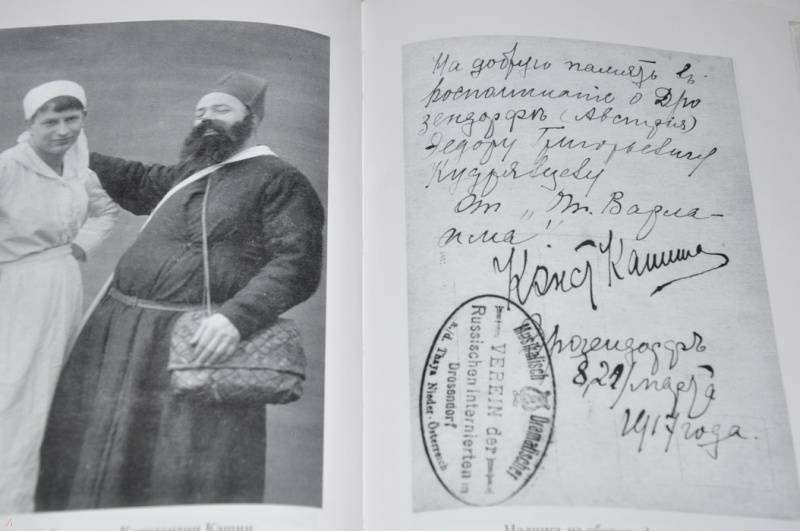 На добрую память въ
воспоминанiе о Дро
зендорфѣ (Австрiя)
Федору Григорьевичу
Кудрявцеву
От „От. Варла-
ама"
Конст Кашинъ
Дрозендорфъ
8/21/марта
1917 года.
Musikalisch Dramatischer
VEREIN der
Russischen Internierten in
Drosendorf
a/d. Thaya Nieder-Österreich
Константин Кашин
Надпись на обороте